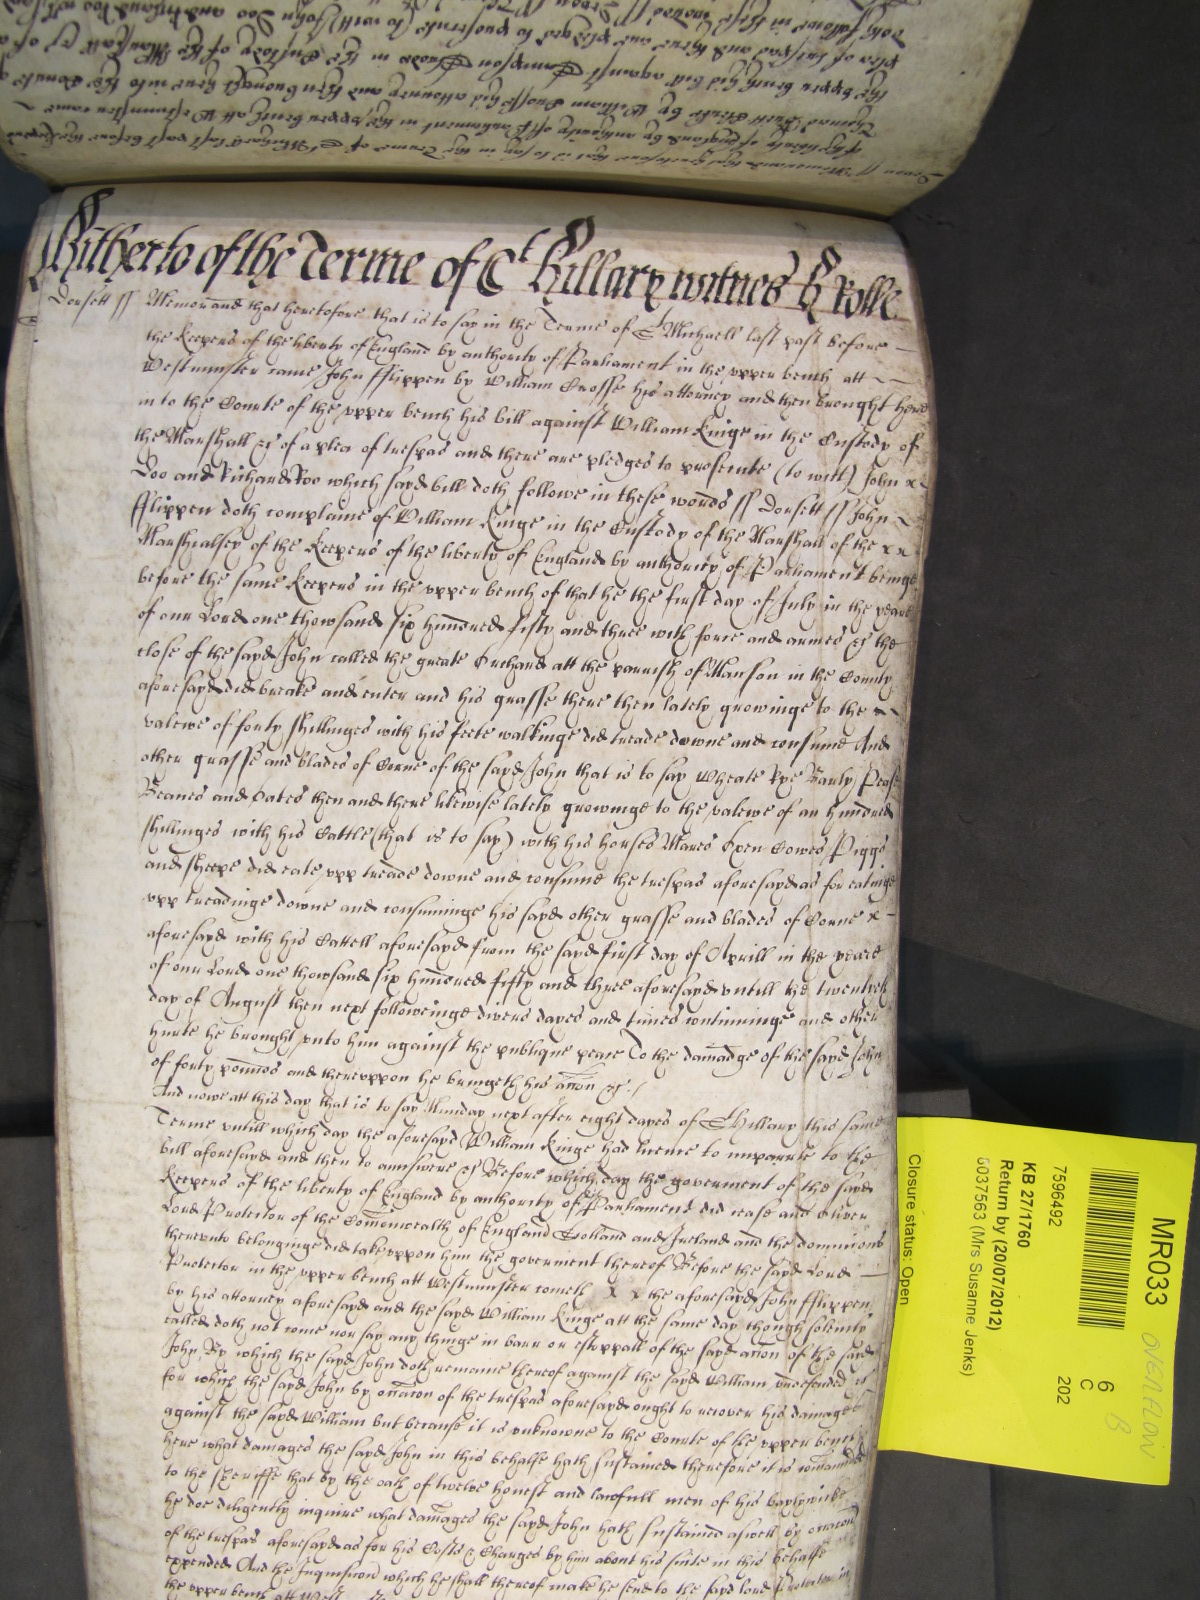 Hitherto of the Terme of St Hillary witnes H Rolle
Dorsett ss Memorand that heretofore that is to say in the Terme of St Michaell last past before
the Keepers of the liberty of England by authority of Parliament in the upper bench att
Westminster came John fflippen by William Crosse his attorney and then brought here
in to the Courte of the upper bench his bill against William Kinge in the Custody of
the Marshall &c of a plea of trespas and there are pledges to prosecute (to witt) John x
Doo and Richard Roo which sayd bill doth followe in these words ss Dorsett ss John
fflippen doth complaine of William Kinge in the Custody of the Marshall of the x x
Marshialsey of the Keepers of the liberty of England by authority of Parliament beinge
before the same Keepers in the upper bench of that he the first day of July in the yeare
of our Lord one thowsand six hundred fifty and three with force and armes &c the
close of the sayd John called the greate Orchard att the parrish of Manson in the County
aforesayd did breake and enter and his grasse there then lately growinge to the
valewe of forty shillinges with his feete walkinge did treade downe and consume And
other grasse and blades of Corne of the sayd John that is to say Wheate Rye Barly Pease
Beanes and Oates then and there likewise lately growinge to the valewe of an hundred
shillinges with his Cattle (that is to say) with his horses Mares Oxen Cowes Piggs
and sheepe did eate upp treade downe and consume the trespas aforesayd as for eatinge
upp treadinge downe and consuminge his sayd other grasse and blades of Corne x
aforesayd with his Cattell aforesayd from the sayd first day of Aprill in the yeare
of our Lord one thowsand six hundred fifty and three aforesayd untill the twentieth
day of August then next followeinge divers dayes and times continuinge and other
hurte he brought unto him against the publique peace To the damadge of the sayd John
of forty pounds and thereuppon he bringeth his accon &c /
And nowe att this day that is to say Munday next after eight dayes of St Hillary this same
Terme untill which day the aforesayd William Kinge had licence to imparle to the
bill aforesayd and then to aunswere &c Before which day the goverment of the sayd
Keepers of the liberty of England by authority of Parliament did cease and Oliver
Lord Protector of the Comonwealth of England Scotland and Ireland and the dominions
thereunto belonginge did take uppon him the goverment thereof Before the sayd Lord
Protector in the upper bench att Westminster cometh x x the aforesayd John fflippen
by his attorney aforesayd and the sayd William Kinge att the same day though solemly
called doth not come nor say any thinge in barr or estoppall of the sayd accon of the sayd
John By which the sayd John doth remaine thereof against the sayd William undefended &c
for which the sayd John by occacon of the trespas aforesayd ought to recover his damages
against the sayd William but because it is unknowne to the Courte of the upper bench
here what damages the sayd John in this behalfe hath sustained therefore it is comaunded
to the Sheriffe that by the oath of twelve honest and lawfull men of his baylywicke
he doe diligently inquire what damages the sayd John hath sustained aswell by occacon
of the trespas aforesayd as for his Costs & Charges by him about his suite in this behalfe
expended And the Inquisicon which he shall thereof make he send to the sayd Lord Protector in
the upper bench att
MR033
OVERFLOW
B
6
C
202
7596492
KB 27/1760
Return by (20/07/2012)
6037563 (Mrs Susanne Jenks)
Closure status: Open